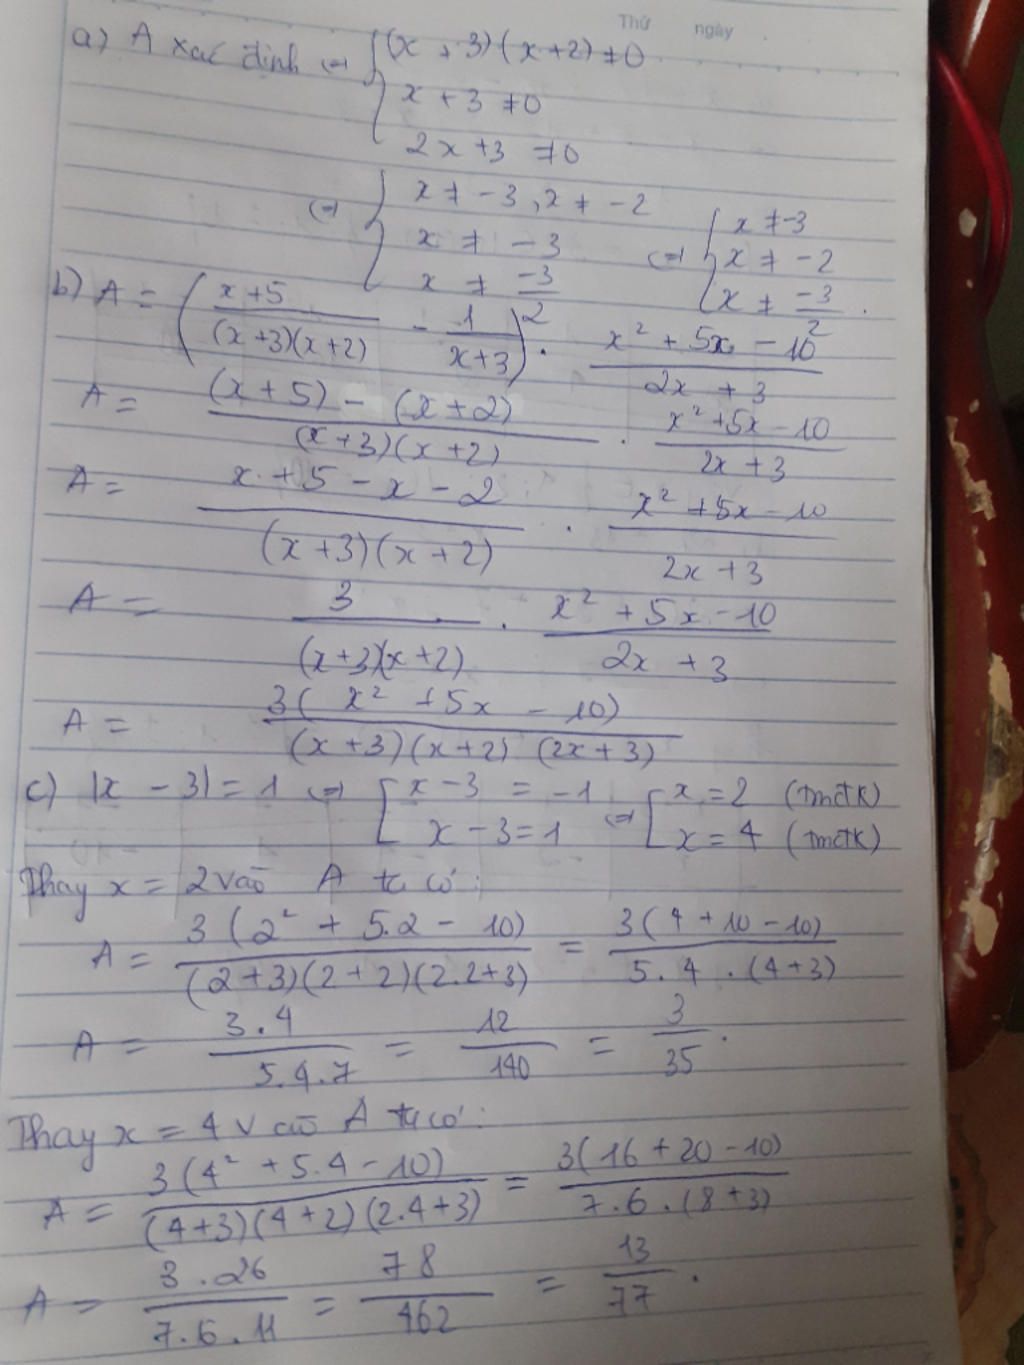 Thứ ngày
a) A xác định ⇔ { (x + 3)(x+2) ≠ 0
x + 3 ≠ 0
2x + 3 ≠ 0
⇔ { x ≠ -3, x ≠ -2
x ≠ -3
x ≠ -3/2
⇔ { x ≠ -3
x ≠ -2
x ≠ -3/2 .
b) A = ( x+5/(x+3)(x+2) - 1/x+3 ) . x² + 5x - 10/2x + 3
A = (x+5) - (x+2)/(x+3)(x+2) . x² + 5x - 10/2x + 3
A = x + 5 - x - 2/(x+3)(x+2) . x² + 5x - 10/2x + 3
A = 3/(x+3)(x+2) . x² + 5x - 10/2x + 3
A = 3( x² + 5x - 10)/(x+3)(x+2)(2x+3)
c) |x - 3| = 1 ⇔ [ x - 3 = -1 ⇔ [ x = 2 (tmđk)
x - 3 = 1 x = 4 (tmđk)
Thay x = 2 vào A ta có:
A = 3(2² + 5.2 - 10)/(2+3)(2+2)(2.2+3) = 3(4 + 10 - 10)/5.4.(4+3)
A = 3.4/5.4.7 = 12/140 = 3/35 .
Thay x = 4 vào A ta có:
A = 3(4² + 5.4 - 10)/(4+3)(4+2)(2.4+3) = 3(16 + 20 - 10)/7.6.(8+3)
A = 3.26/7.6.11 = 78/462 = 13/77 .